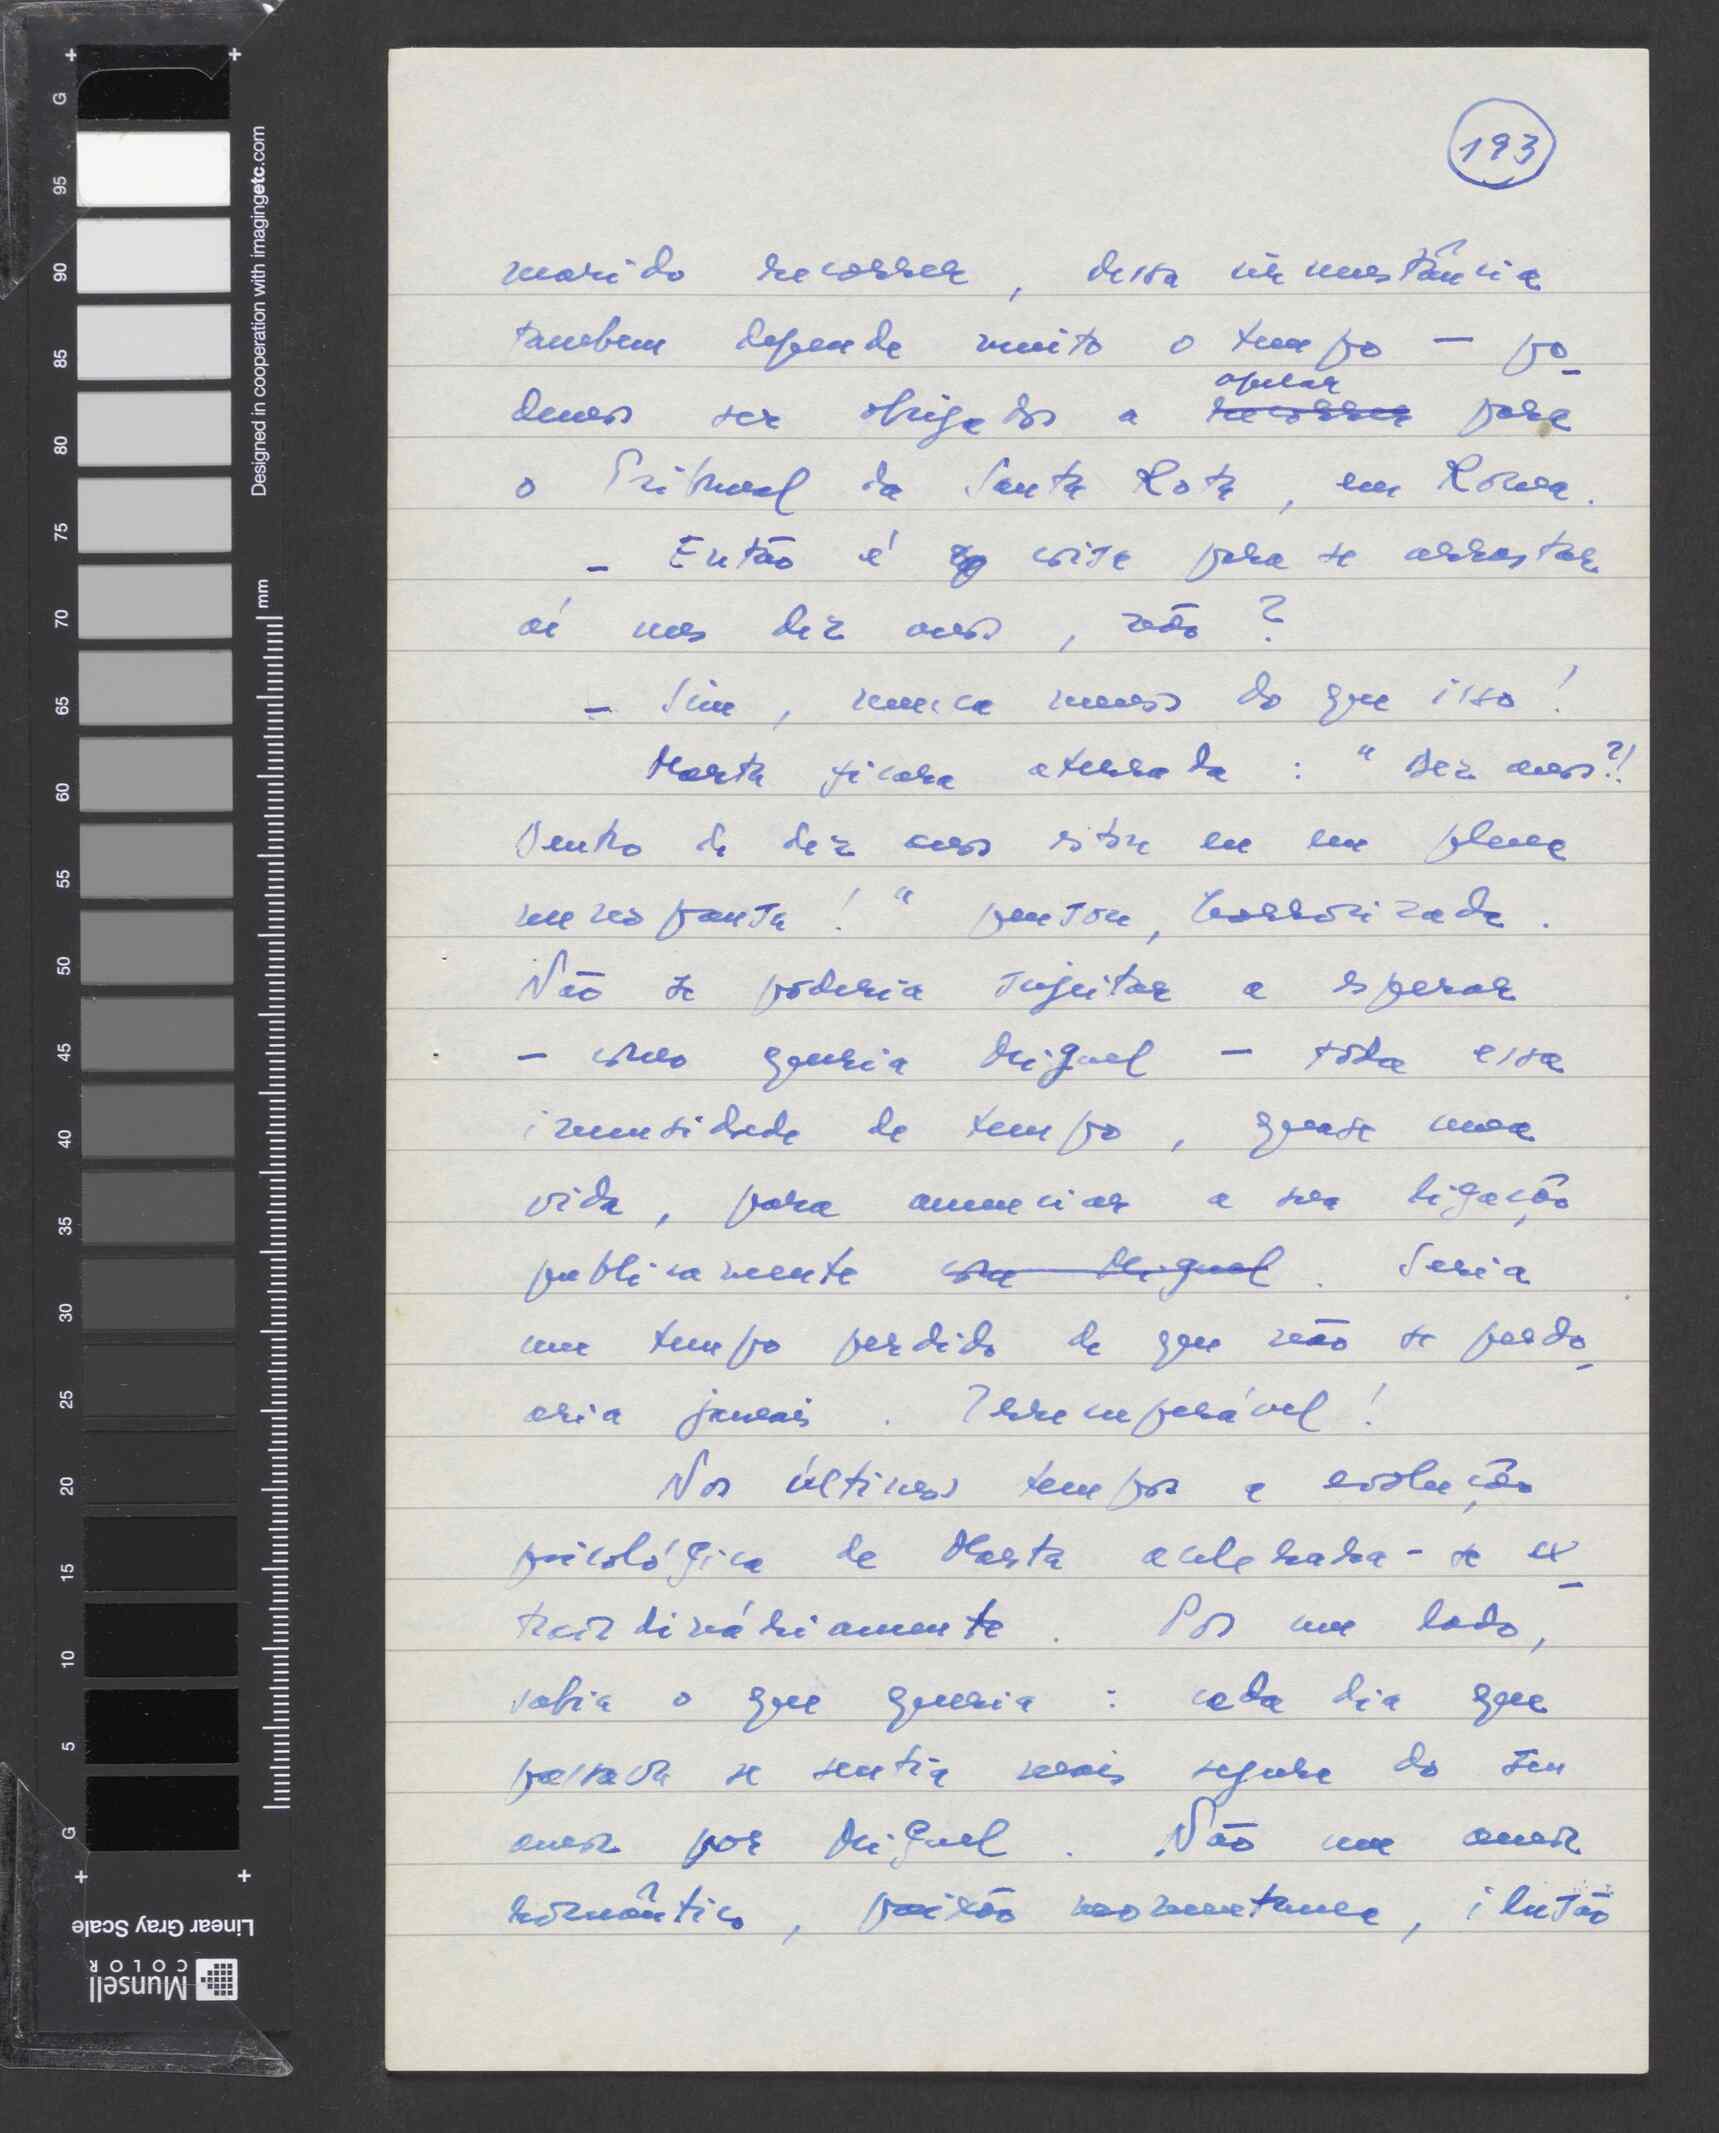 193
marido recorrer, dessa circunstância
tambem depende muito o tempo — po-
demos ser obrigados a recorrer apelar para
o Tribunal da Santa Rota, em Roma.
- Então é coisa para se arrastar
aí uns dez anos, não?
- Sim, nunca menos do que isso!
Marta ficara aterrada: "Dez anos?!
Dentro de dez anos estou eu em plena
menopausa!" pensou, horrorizada.
Não se poderia sujeitar a esperar
- como queria Miguel - tôda essa
imensidade de tempo, quase uma
vida, para anunciar a sua ligação
publicamente com Miguel. Seria
um tempo perdido de que não se perdo-
aria jamais. Irrecuperável!
Nos últimos tempos a evolução
psicológica de Marta acelerara-se ex-
traordinàriamente. Por um lado,
sabia o que queria: cada dia que
passava se sentia mais segura do seu
amor por Miguel. Não um amor
romântico, paixão momentanea, ilusão
G
95
90
85
80
75
70
65
60
55
50
45
40
35
30
25
20
15
10
5
G
mm
Designed in cooperation with imagingetc.com
Linear Gray Scale
Munsell
COLOR